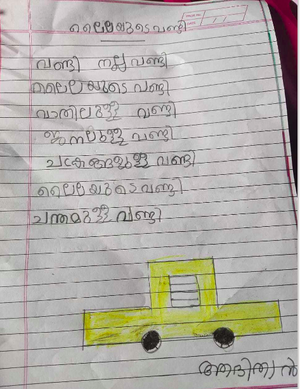 ലൈലയുടെ വണ്ടി
വണ്ടി നല്ല വണ്ടി
ലൈലയുടെ വണ്ടി
വാതിലുള്ള വണ്ടി
ജനലുള്ള വണ്ടി
ചക്രങ്ങളുള്ള വണ്ടി
ലൈലയുടെ വണ്ടി
ചന്തമുള്ള വണ്ടി
ആദിത്യൻ